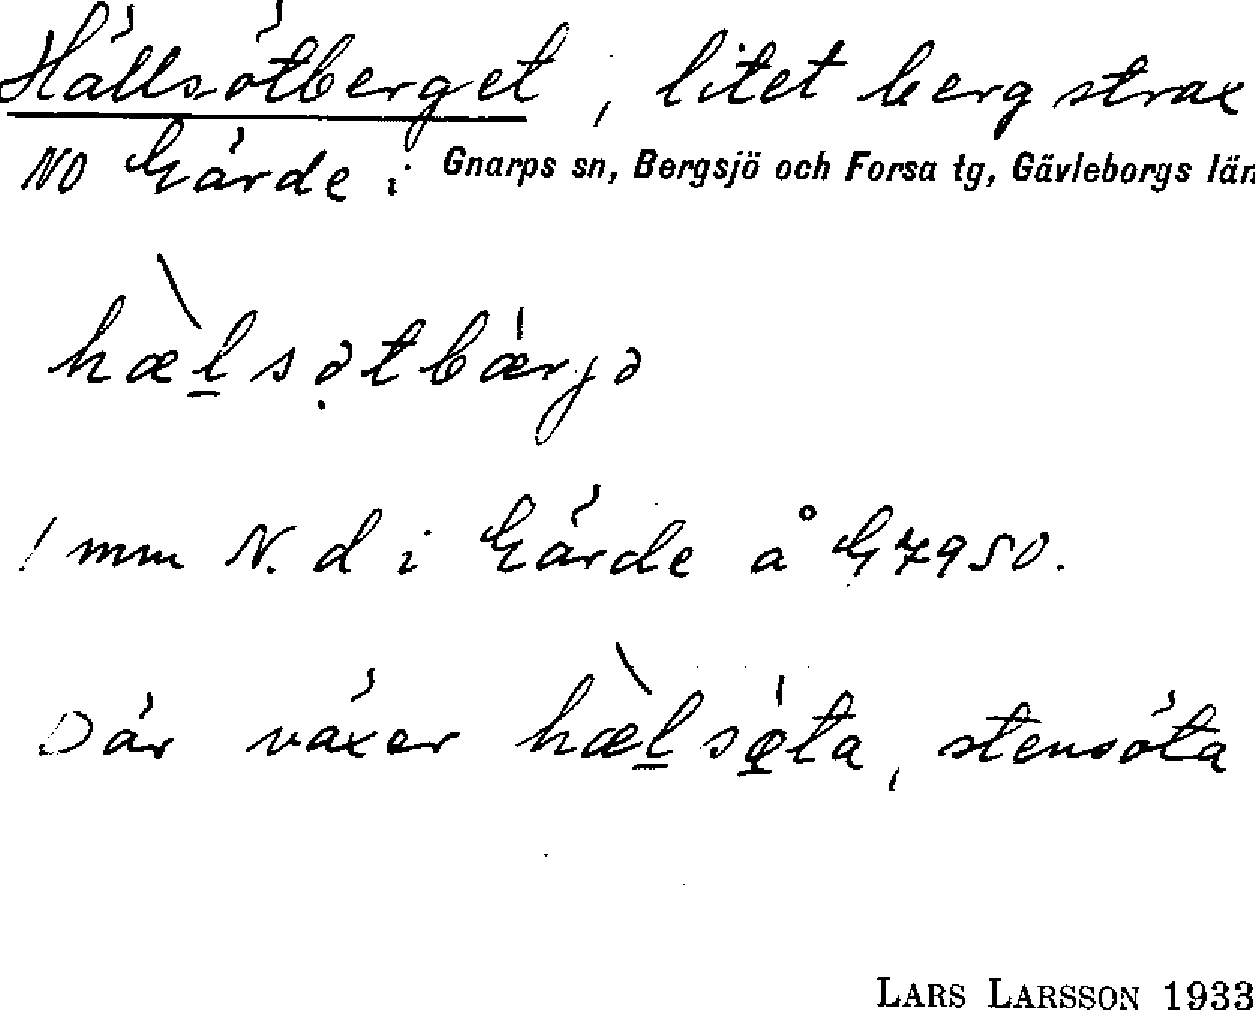 Hällsötberget, litet berg strax
NO Gärde i Gnarps sn, Bergsjö och Forsa tg, Gävleborgs län
hæ̀l̲sə̣tbæ̍rjə
1 mm N. d i Gärde å G7950.
Där växer hæ̀l̲sø̲̍ta, stensöta
LARS LARSSON 1933